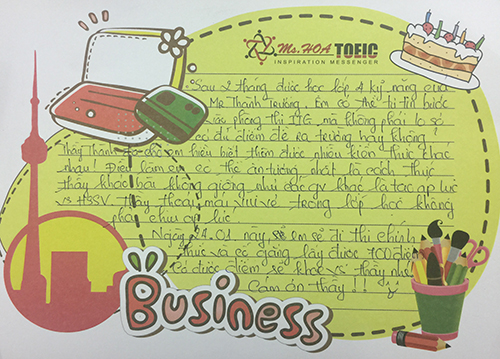 Ms. HOA TOEIC
INSPIRATION MESSENGER
Sau 2 tháng được học lớp 4 kỹ năng của
Mr Thành Trường. Em có thể tự tin bước
vào phòng thi IIG mà không phải lo sợ
có đủ điểm để ra trường hay không!
Thầy Thành cho em hiểu biết thêm được nhiều kiến thức khác
nhau! Điều làm em có thể ấn tượng nhất là cách thức
thầy khác không giống như các gv khác là tạo áp lực
vs HSSV. Thầy thoải mái vui vẻ trong lớp học không
phải chịu áp lực
Ngày 24.01 này em sẽ đi thi chính
thức và cố gắng lấy được 700 điểm
Có được điểm sẽ khoe vs thầy
Cảm ơn thầy!!
Business